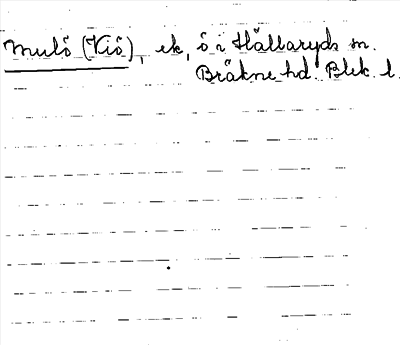 Mulö (Viö), ek, ö i Hällaryds sn.
Bräkne hd. Blek. l.